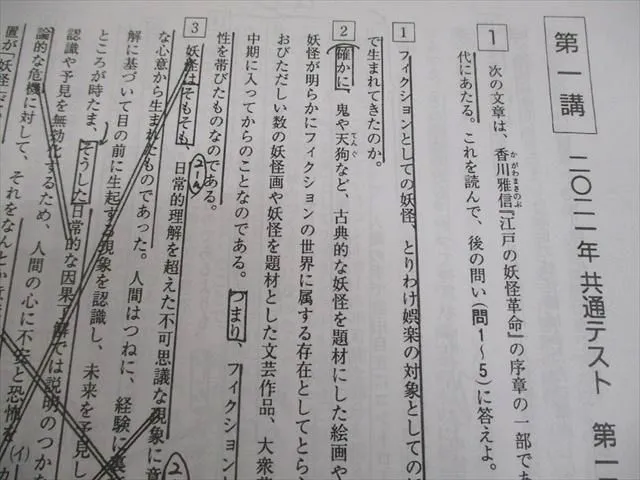 第一講
二〇二一年 共通テスト 第一
1 次の文章は、香川雅信『江戸の妖怪革命』の序章の一部であ
かがわまさのぶ
代にあたる。これを読んで、後の問い(問1〜5)に答えよ。
1 フィクションとしての妖怪、とりわけ娯楽の対象としての
で生まれてきたのか。
2 確かに、鬼や天狗など、古典的な妖怪を題材にした絵画や
てんぐ
妖怪が明らかにフィクションの世界に属する存在としてとら
おびただしい数の妖怪画や妖怪を題材とした文芸作品、大衆
中期に入ってからのことなのである。つまり、フィクション
性を帯びたものなのである。
3 妖怪はそもそも、日常的理解を超えた不可思議な現象に意
な心意から生まれたものであった。人間はつねに、経験に裏
解に基づいて目の前に生起する現象を認識し、未来を予見し
ところが時たま、そうした日常的な因果了解では説明のつか
認識や予見を無効化するため、人間の心に不安と恐怖を(イ)
論的な危機に対して、それをなんとか
置が「妖怪